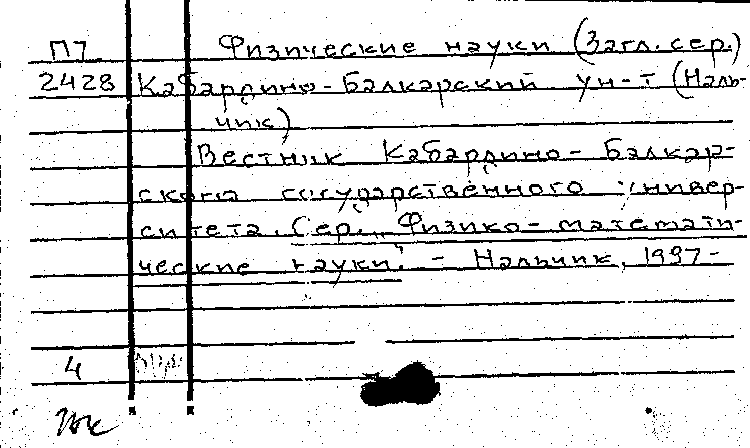 П7 Физические науки (Загл. сер.)
2428 Кабардино-Балкарский ун-т (Наль-
чик)
Вестник Кабардино-Балкар-
ского государственного универ-
ситета. Сер. Физико-математи-
ческие науки. - Нальчик, 1997-
4